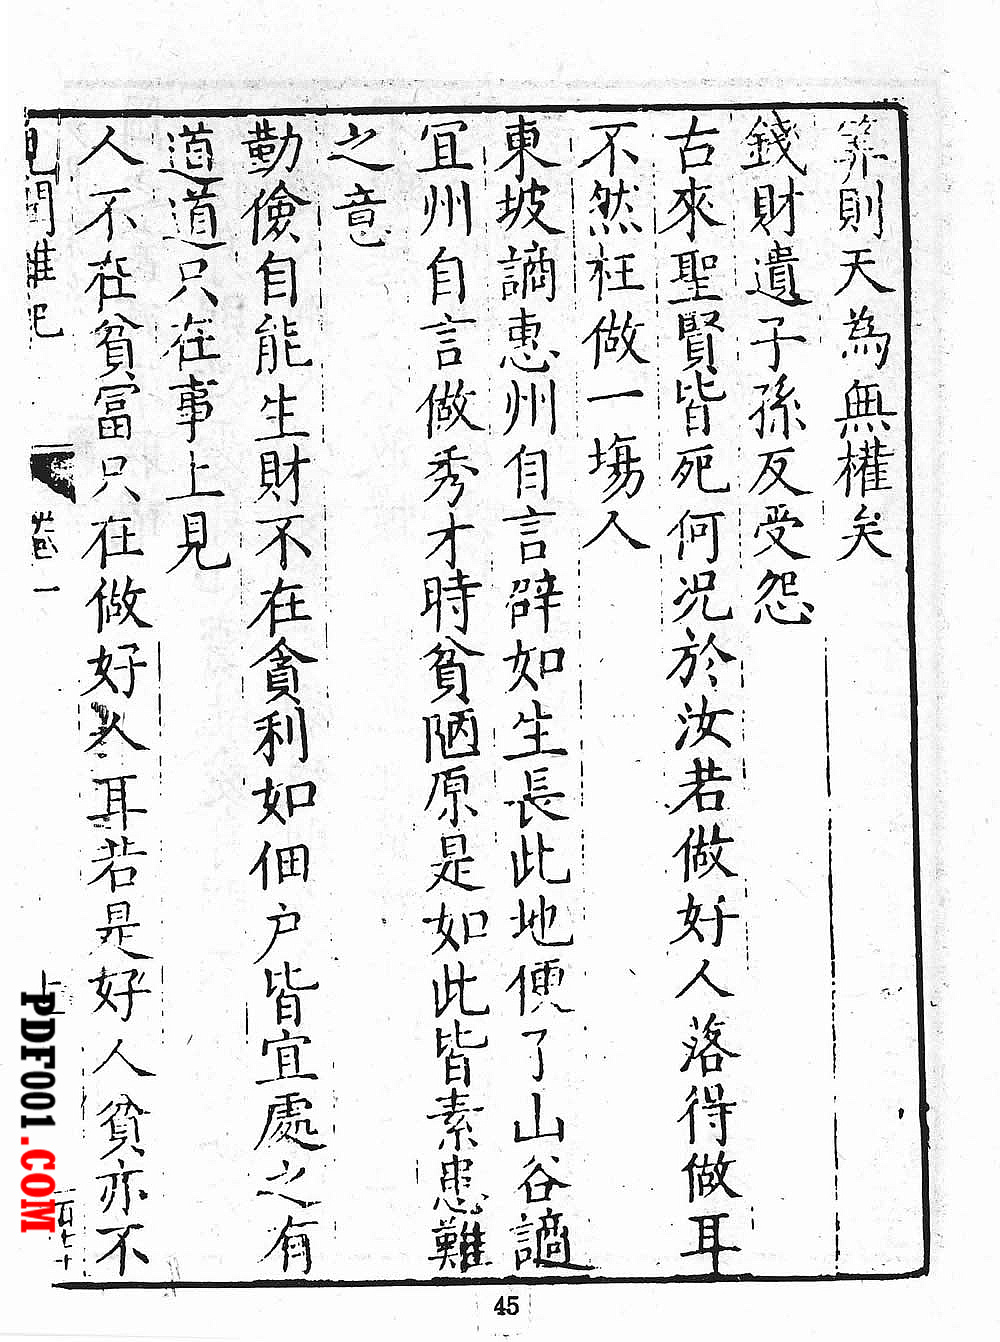 算則天為無權矣
錢財遺子孫反受怨
古來聖賢皆死何况於汝若做好人落得做耳
不然枉做一塲人
東坡謫惠州自言辟如生長此地便了山谷謫
冝州自言做秀才時貧陋原是如此皆素患難
之意
勤儉自能生財不在貪利如佃户皆宜處之有
道道只在事上見
人不在貧富只在做好人耳若是好人貧亦不
見聞雜記
卷一
PDF001.COM
45